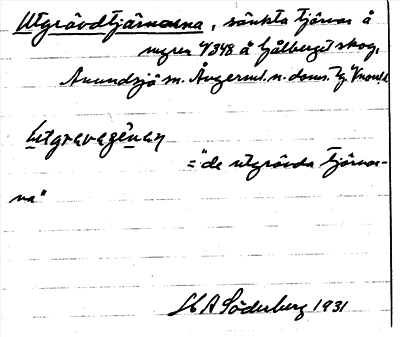 Utgrävdtjärnarna, sänkta tjärnar å
myren V348 å Gålberget skog,
Anundsjö sn. Ångerml. n. doms. tg Vnorrl.
utgravagę́nan
="de utgrävda tjärnar-
na"
H A Söderberg 1931